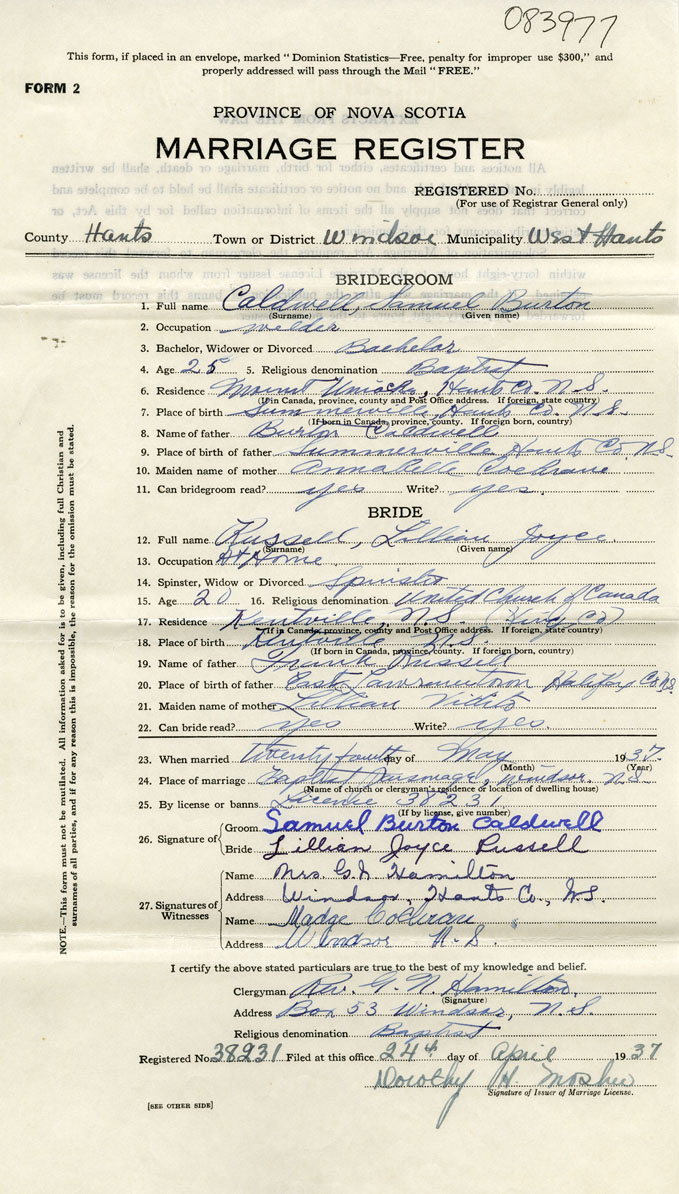 083977
This form, if placed in an envelope, marked " Dominion Statistics—Free, penalty for improper use $300," and
properly addressed will pass through the Mail " FREE."
FORM 2
PROVINCE OF NOVA SCOTIA
MARRIAGE REGISTER
REGISTERED No.
(For use of Registrar General only)
County Hants Town or District Windsor Municipality West Hants
BRIDEGROOM
1. Full name Caldwell, Samuel Burton
(Surname) (Given name)
2. Occupation welder
3. Bachelor, Widower or Divorced Bachelor
4. Age 25 5. Religious denomination Baptist
6. Residence Mount Uniacke, Hants Co. N.S.
(If in Canada, province, county and Post Office address. If foreign, state country)
7. Place of birth Summerville, Hants Co. N.S.
(If born in Canada, province, county. If foreign born, country)
8. Name of father Burton Caldwell
9. Place of birth of father Summerville Hants Co N.S.
10. Maiden name of mother Annabelle Cochrane
11. Can bridegroom read? yes Write? yes.
BRIDE
12. Full name Russell, Lillian Joyce
(Surname) (Given name)
13. Occupation At Home
14. Spinster, Widow or Divorced Spinster
15. Age 20 16. Religious denomination United Church of Canada
17. Residence Kentville, N.S. (Kings Co)
(If in Canada, province, county and Post Office address. If foreign, state country)
18. Place of birth Kentville N.S.
(If born in Canada, province, county. If foreign born, country)
19. Name of father Frank Russell
20. Place of birth of father East Lawrencetown Halifax Co. N.S.
21. Maiden name of mother Lillian
22. Can bride read? yes Write? yes.
23. When married Twenty fourth day of May 1937.
(Month) (Year)
24. Place of marriage Baptist Parsonage, Windsor. N.S.
(Name of church or clergyman's residence or location of dwelling house)
25. By license or banns License 38231
(If by license, give number)
26. Signature of
Groom Samuel Burton Caldwell
Bride Lillian Joyce Russell
27. Signatures of Witnesses
Name Mrs. G. N. Hamilton
Address Windsor, Hants Co., N.S.
Name Madge Cochran
Address Windsor N.S.
I certify the above stated particulars are true to the best of my knowledge and belief.
Clergyman Rev. G. N. Hamilton,
(Signature)
Address Box 53 Windsor, N.S.
Religious denomination Baptist
Registered No. 38231 Filed at this office 24th day of April 1937
Dorothy H Mosher
Signature of Issuer of Marriage License.
[SEE OTHER SIDE]
NOTE.—This form must not be mutilated. All information asked for is to be given, including full Christian and
surnames of all parties, and if for any reason this is impossible, the reason for the omission must be stated.